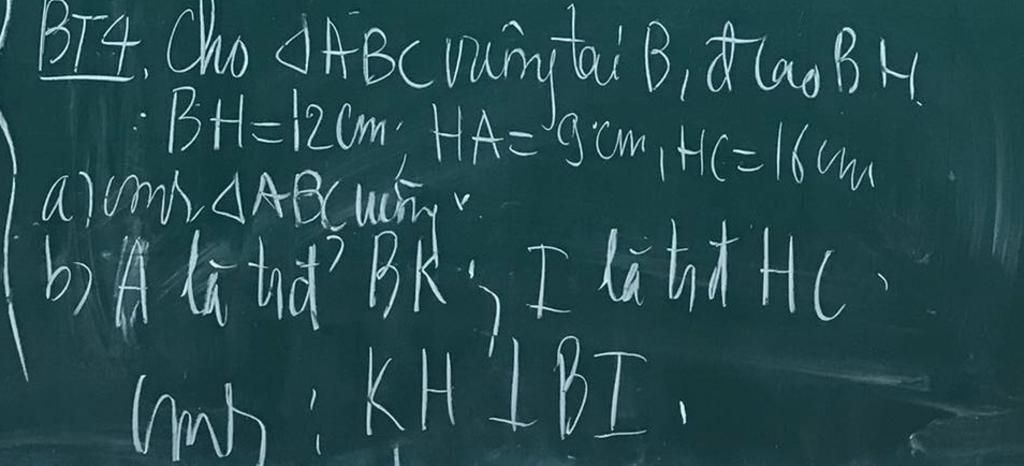 BT4. Cho ΔABC vuông tại B, đ cao BH.
: BH=12cm, HA=9cm, HC=16cm
a) cmr ΔABC vuông.
b) A là trđ BK; I là trđ HC.
cmr: KH ⊥ BI.